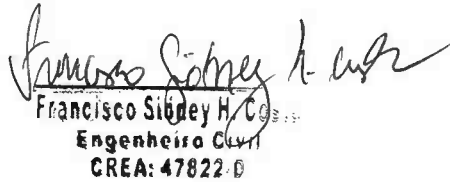 Francisco Sidney H.
Francisco Sidney H. Co
Engenheiro Civil
CREA: 47822-D